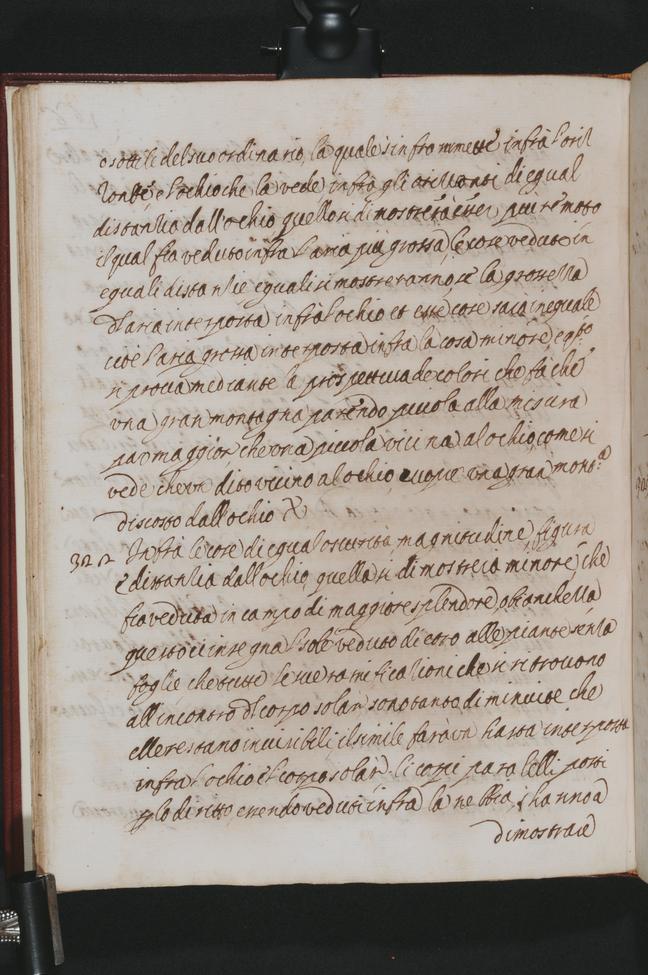 e sottile del suo ordinario, la quale s'inframmette infra l'oriz
zonte e l'ochio che la vede infra gli orizzonti di egual
distantia dall ochio quello si dimostrerà esser più remoto
il qual fia veduto infra l'aria più grossa, le cose vedute in
eguali distantie eguali si mostreranno se la grossezza
d'laria interposta infra l'ochio et esse cose sarà inequale
cioè l'aria grossa interposta infra la cosa minore, e q.to
si prova mediante la prospettiva de colori che fà che
una gran montagna parendo picola alla misura
par maggior che una piccola vicina al ochio come si
vede che un dito vicino al ochio cuopre una gran mont.a
discosto dall ochio
322 Infra le cose di egual oscurità magnitudine, figura
e distantia dall ochio, quella si dimostrerà minore, che
fia veduta in campo di maggiore splendore o bianchezza
questo ci insegna l sole veduto dietro alle piante senza
foglie che tutte le sue ramificationi che si ritrovono
all incontro d'l corpo solar sono tanto diminuite che
elle restano invisibili il simile farà un hasta interposta
infra l'ochio e'l corpo solar. li corpi paralelli posti
p lo diritto essendo veduti infra la nebbia, s'hanno à
dimostrare